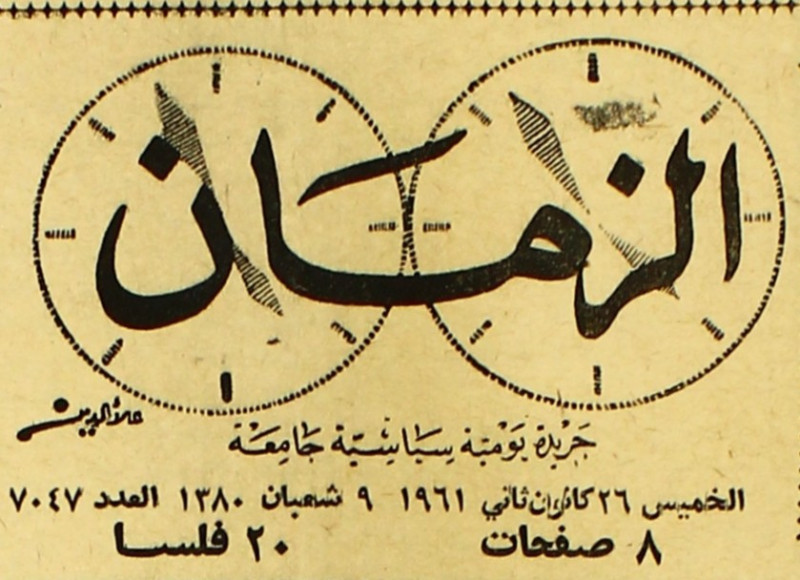 الزمان
علاءالدين
جريدة يومية سياسية جامعة
الخميس ٢٦ كانون ثاني ١٩٦١ ٩ شعبان ١٣٨٠ العدد ٧٠٤٧
٨ صفحات ٢٠ فلسا